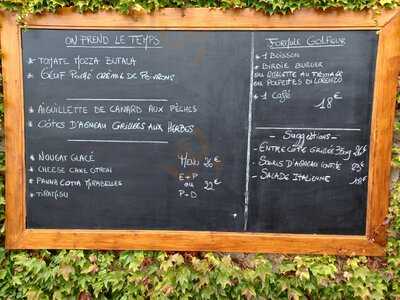 ON PREND LE TEMPS
* TOMATE MOZZA BUFALA
* OEUF POCHÉ CRÉME DE POIVRONS
* AIGUILLETTE DE CANARD AUX PÊCHES
* CÔTES D'AGNEAU GRILLEES AUX HERBES
* NOUGAT GLACÉ
* CHEESE CAKE CITRON
* PANNA COTTA MIRABELLES
* TIRAMISU
MENU 26€
E+P
OU 22€
P+D
FORMULE GOLFEUR
* 1 BOISSON
* BIRDIE BURGER
OU OMELETTE AU FROMAGE
OU POLPETTES DI LORENZO
* 1 CAFÉ
18€
- Suggestions -
- ENTRECÔTE GRILLÉE 350g
- SOURIS D'AGNEAU CONFITE
- SALADE ITALIENNE